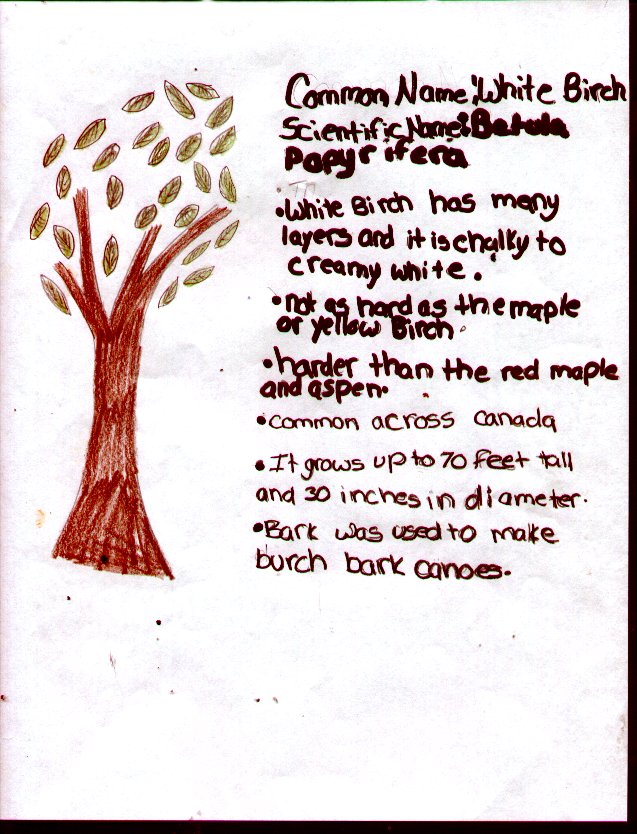 Common Name: White Birch
Scientific Name: Betula
Papyrifera
•White Birch has many
layers and it is chalky to
creamy white.
•not as hard as the maple
or yellow Birch.
•harder than the red maple
and aspen.
•common across canada
•It grows up to 70 feet tall
and 30 inches in diameter.
•Bark was used to make
burch bark canoes.